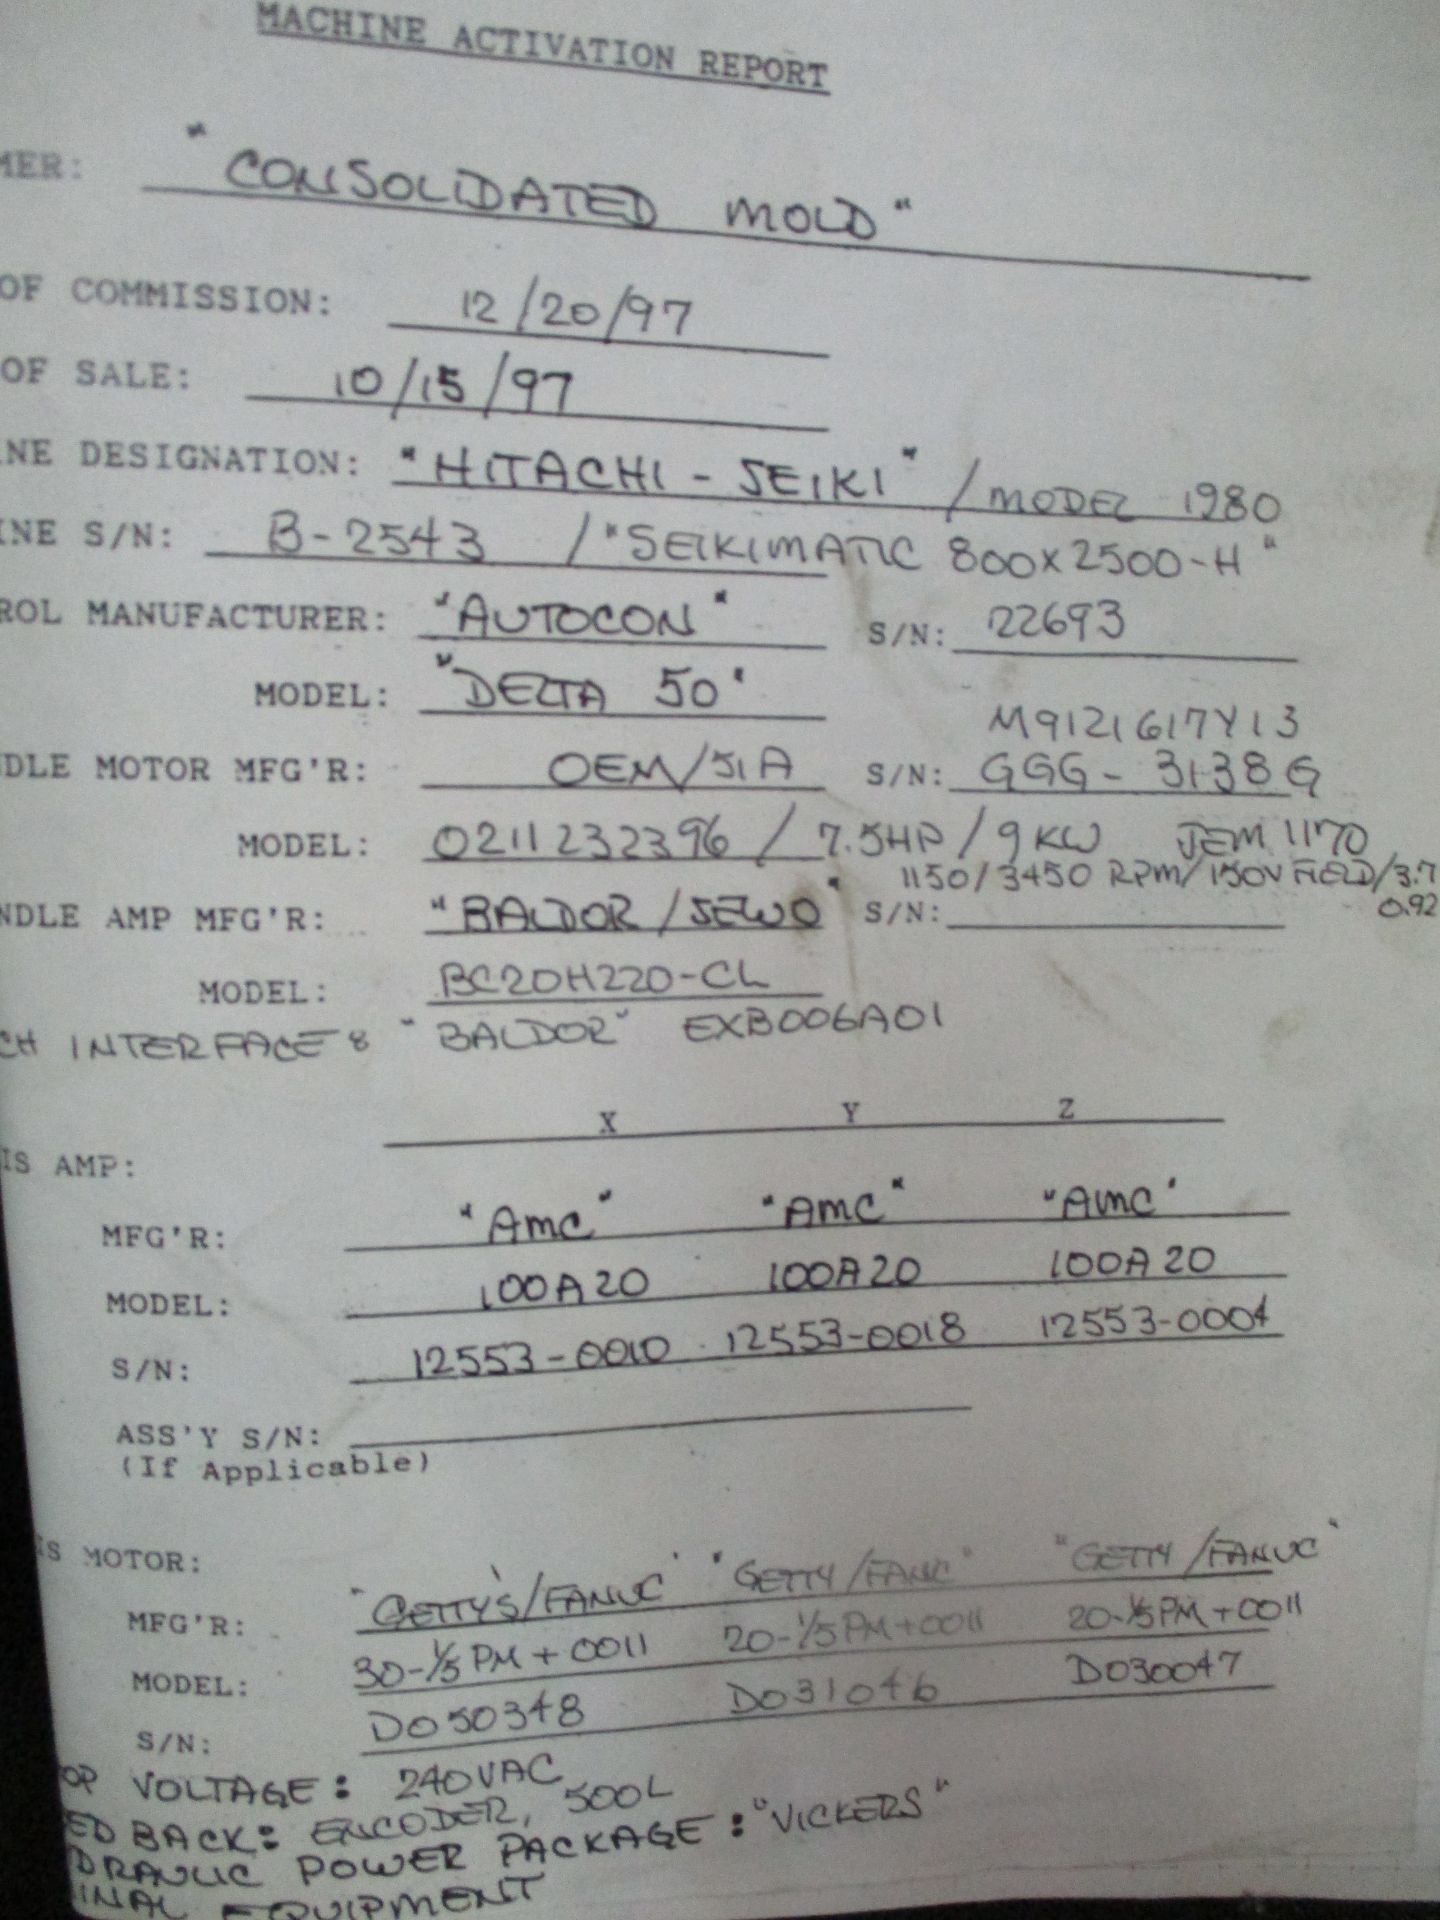 MACHINE ACTIVATION REPORT
MER: "CONSOLIDATED MOLD"
OF COMMISSION: 12/20/97
OF SALE: 10/15/97
NE DESIGNATION: "HITACHI-SEIKI" / MODEL 1980
INE S/N: B-2543 / "SEIKIMATIC 800X2500-H"
ROL MANUFACTURER: "AUTOCON" S/N: 22693
MODEL: "DELTA 50"
M9121617Y13
DLE MOTOR MFG'R: OEM/SIA S/N: GGG-3138G
MODEL: 0211232396 / 7.5HP / 9 KW JEM 1170
1150/3450 RPM/150V FIELD/3.7
0.92
NDLE AMP MFG'R: "BALDOR/SEWO" S/N:
MODEL: BC20H220-CL
CH INTERFACE: "BALDOR" EXB006A01
X Y Z
IS AMP:
MFG'R: "AMC" "AMC" "AMC"
MODEL: 100A20 100A20 100A20
S/N: 12553-0010 12553-0018 12553-0004
ASS'Y S/N:
(If Applicable)
IS MOTOR:
MFG'R: "GETTY'S/FANUC" "GETTY/FANC" "GETTY/FANUC"
MODEL: 30-1/5 PM+0011 20-1/5 PM+0011 20-1/5 PM+0011
S/N: D050348 D031046 D030047
OP VOLTAGE: 240VAC
ED BACK: ENCODER, 500L
DRAULIC POWER PACKAGE: "VICKERS"
INAL EQUIPMENT